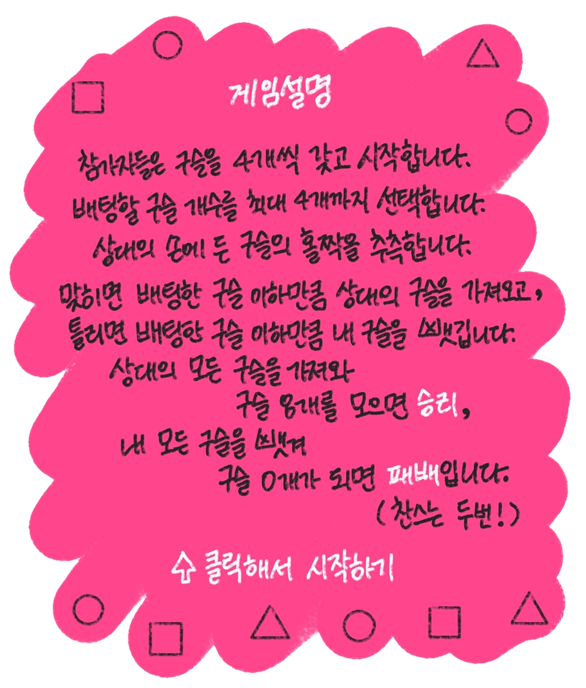 게임설명
참가자들은 구슬을 4개씩 갖고 시작합니다.
배팅할 구슬 개수를 최대 4개까지 선택합니다.
상대의 손에 든 구슬의 홀짝을 추측합니다.
맞히면 배팅한 구슬 이하만큼 상대의 구슬을 가져오고,
틀리면 배팅한 구슬 이하만큼 내 구슬을 뺏깁니다.
상대의 모든 구슬을 가져와
구슬 8개를 모으면 승리,
내 모든 구슬을 뺏겨
구슬 0개가 되면 패배입니다.
(찬스는 두번!)
클릭해서 시작하기